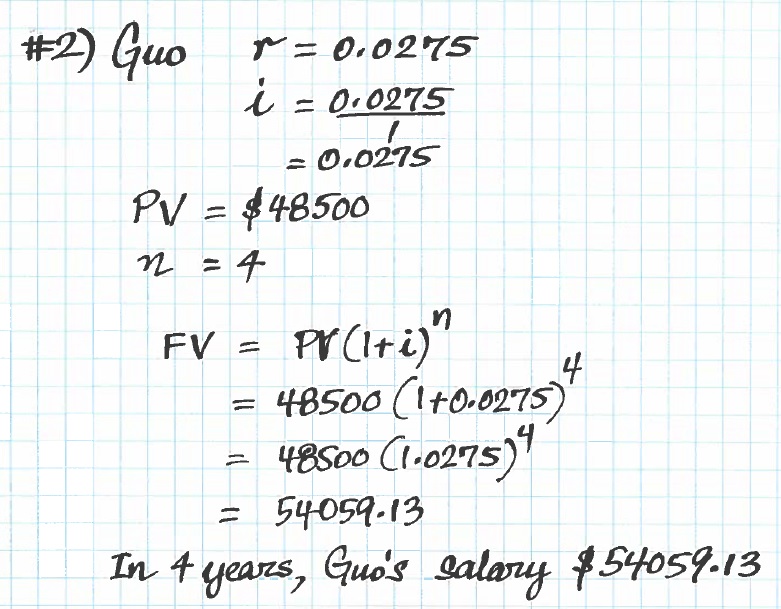 #2) Guo r = 0.0275
i = 0.0275
1
= 0.0275
PV = $48500
n = 4
FV = PV(1+i)^n
= 48500 (1+0.0275)^4
= 48500 (1.0275)^4
= 54059.13
In 4 years, Guo's salary $54059.13